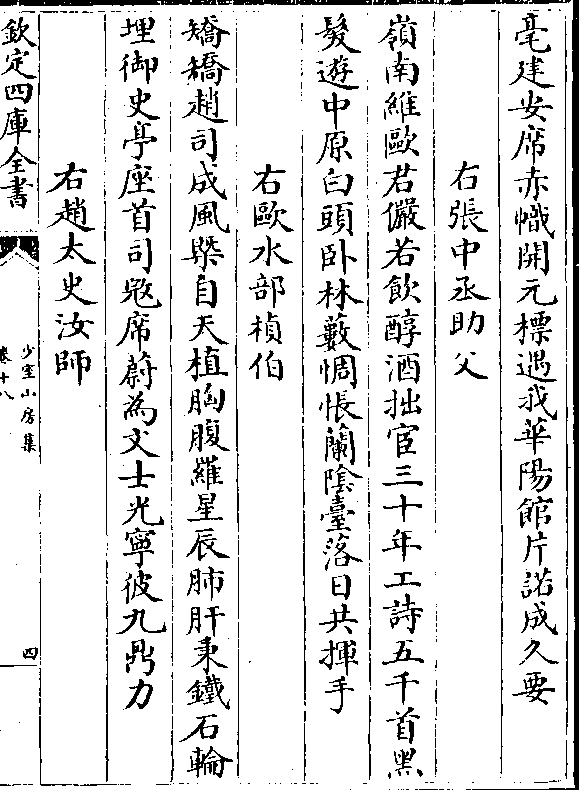 毫建安席赤幟開元標遇我華陽館片諾成久要
右張中丞助父
嶺南維歐君儼若飲醇酒拙宦三十年工詩五千首黑
髮遊中原白頭卧林藪惆悵蘭陰臺落日共揮手
右歐水部楨伯
矯矯趙司成風槩自天植胸腹羅星辰肺肝秉鐵石輪
埋御史亭座首司寇席蔚為文士光寧彼九鼎力
右趙太史汝師
欽定四庫全書
少室山房集
卷十八
四